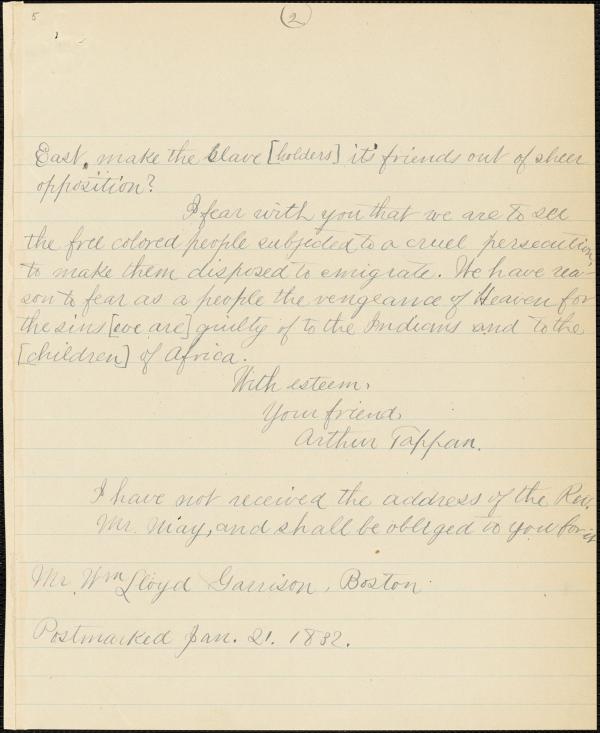 5
(2)
East, make the slave [holders] it's friends out of sheer
opposition?
I fear with you that we are to see
the free colored people subjected to a cruel persecution,
to make them disposed to emigrate. We have rea-
son to fear as a people the vengeance of Heaven for
the sins [we are] guilty of to the Indians and to the
[children] of Africa.
With esteem,
Your friend,
Arthur Tappan.
I have not received the address of the Rev.
Mr. May, and shall be obliged to you for it
Mr. Wm Lloyd Garrison, Boston
Postmarked Jan. 21. 1832.